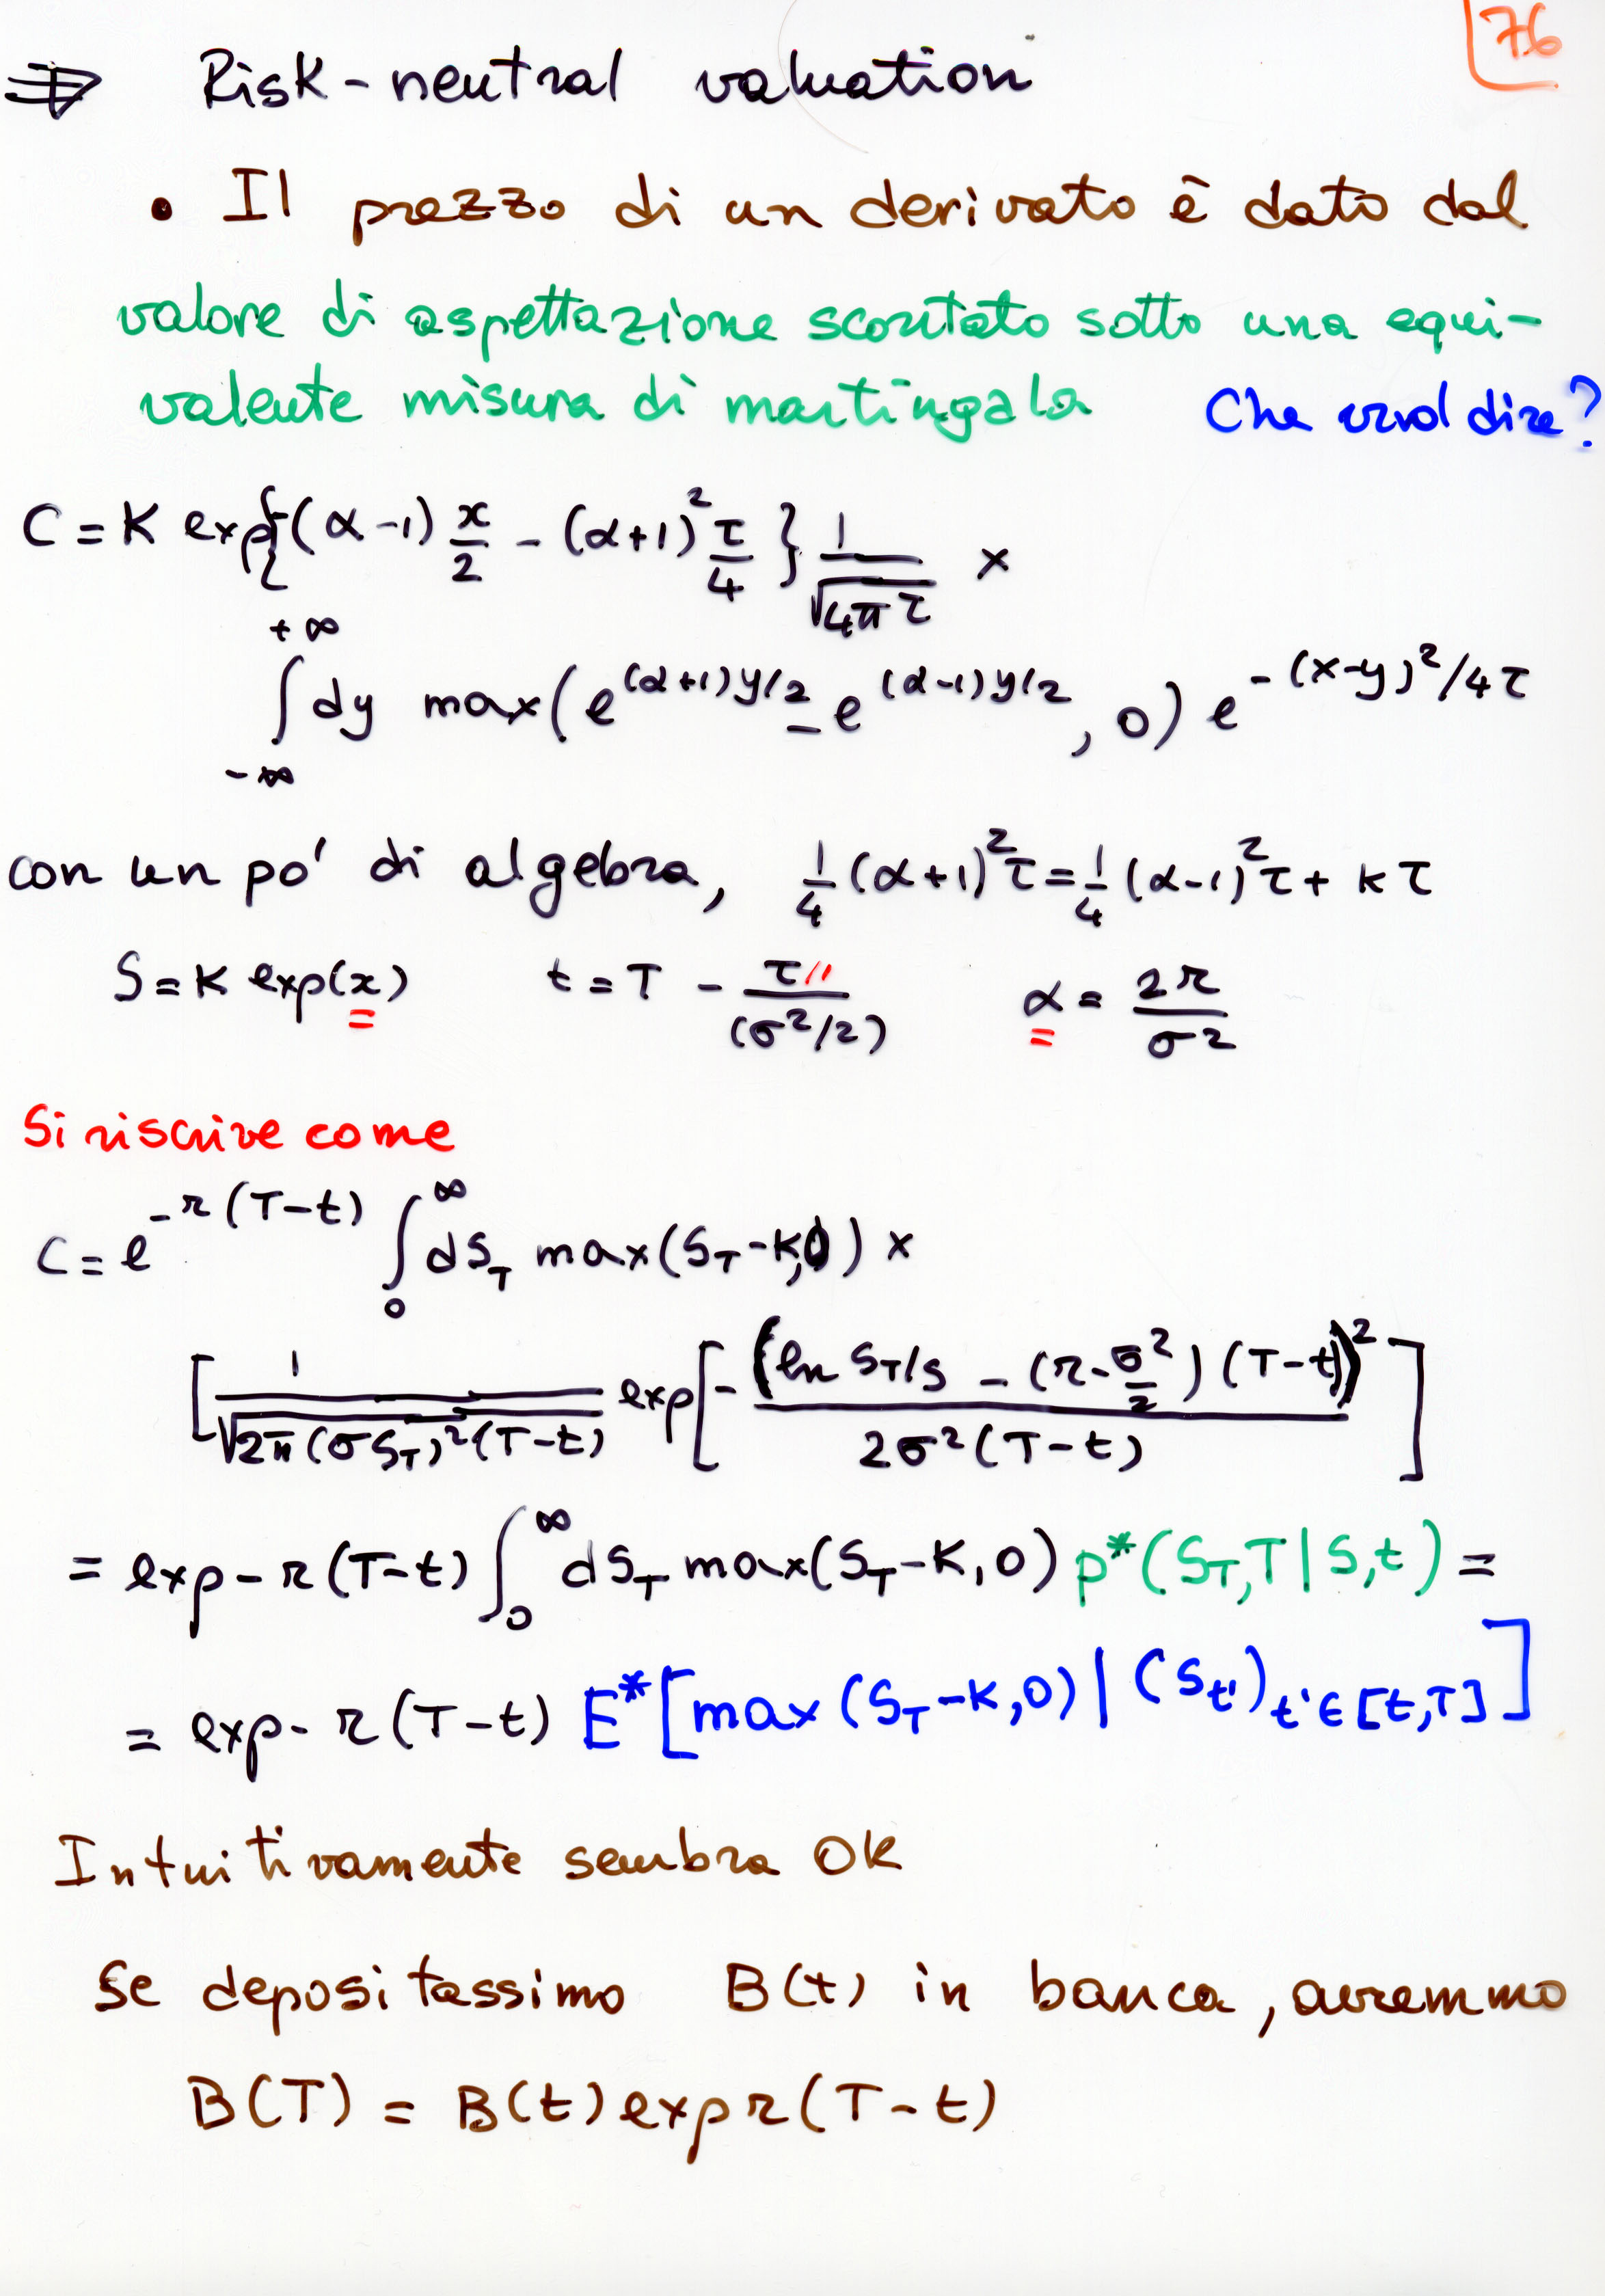 76
⇒ Risk-neutral valuation
• Il prezzo di un derivato è dato dal
valore di aspettazione scontato sotto una equi-
valente misura di martingala Che vuol dire?
C = K exp{(α-1) x/2 - (α+1)² τ/4} 1/√(4πτ) ×
∫_{-∞}^{+∞} dy max(e^{(α+1)y/2} - e^{(α-1)y/2}, 0) e^{-(x-y)²/4τ}
con un po' di algebra, 1/4 (α+1)² τ = 1/4 (α-1)² τ + κτ
S = K exp(x) t = T - τ/(σ²/2) α = 2r/σ²
Si riscrive come
C = e^{-r(T-t)} ∫_0^∞ dS_T max(S_T - K, 0) ×
[1/√(2π(σS_T)²(T-t)) exp[-(ln S_T/S - (r-σ²/2)(T-t))²/2σ²(T-t)]
= exp - r(T-t) ∫_0^∞ dS_T max(S_T - K, 0) p*(S_T, T | S, t) =
= exp - r(T-t) E*[max(S_T - K, 0) | (S_t')_{t'∈[t,T]}]
Intuitivamente sembra OK
Se depositassimo B(t) in banca, avremmo
B(T) = B(t) exp r(T-t)